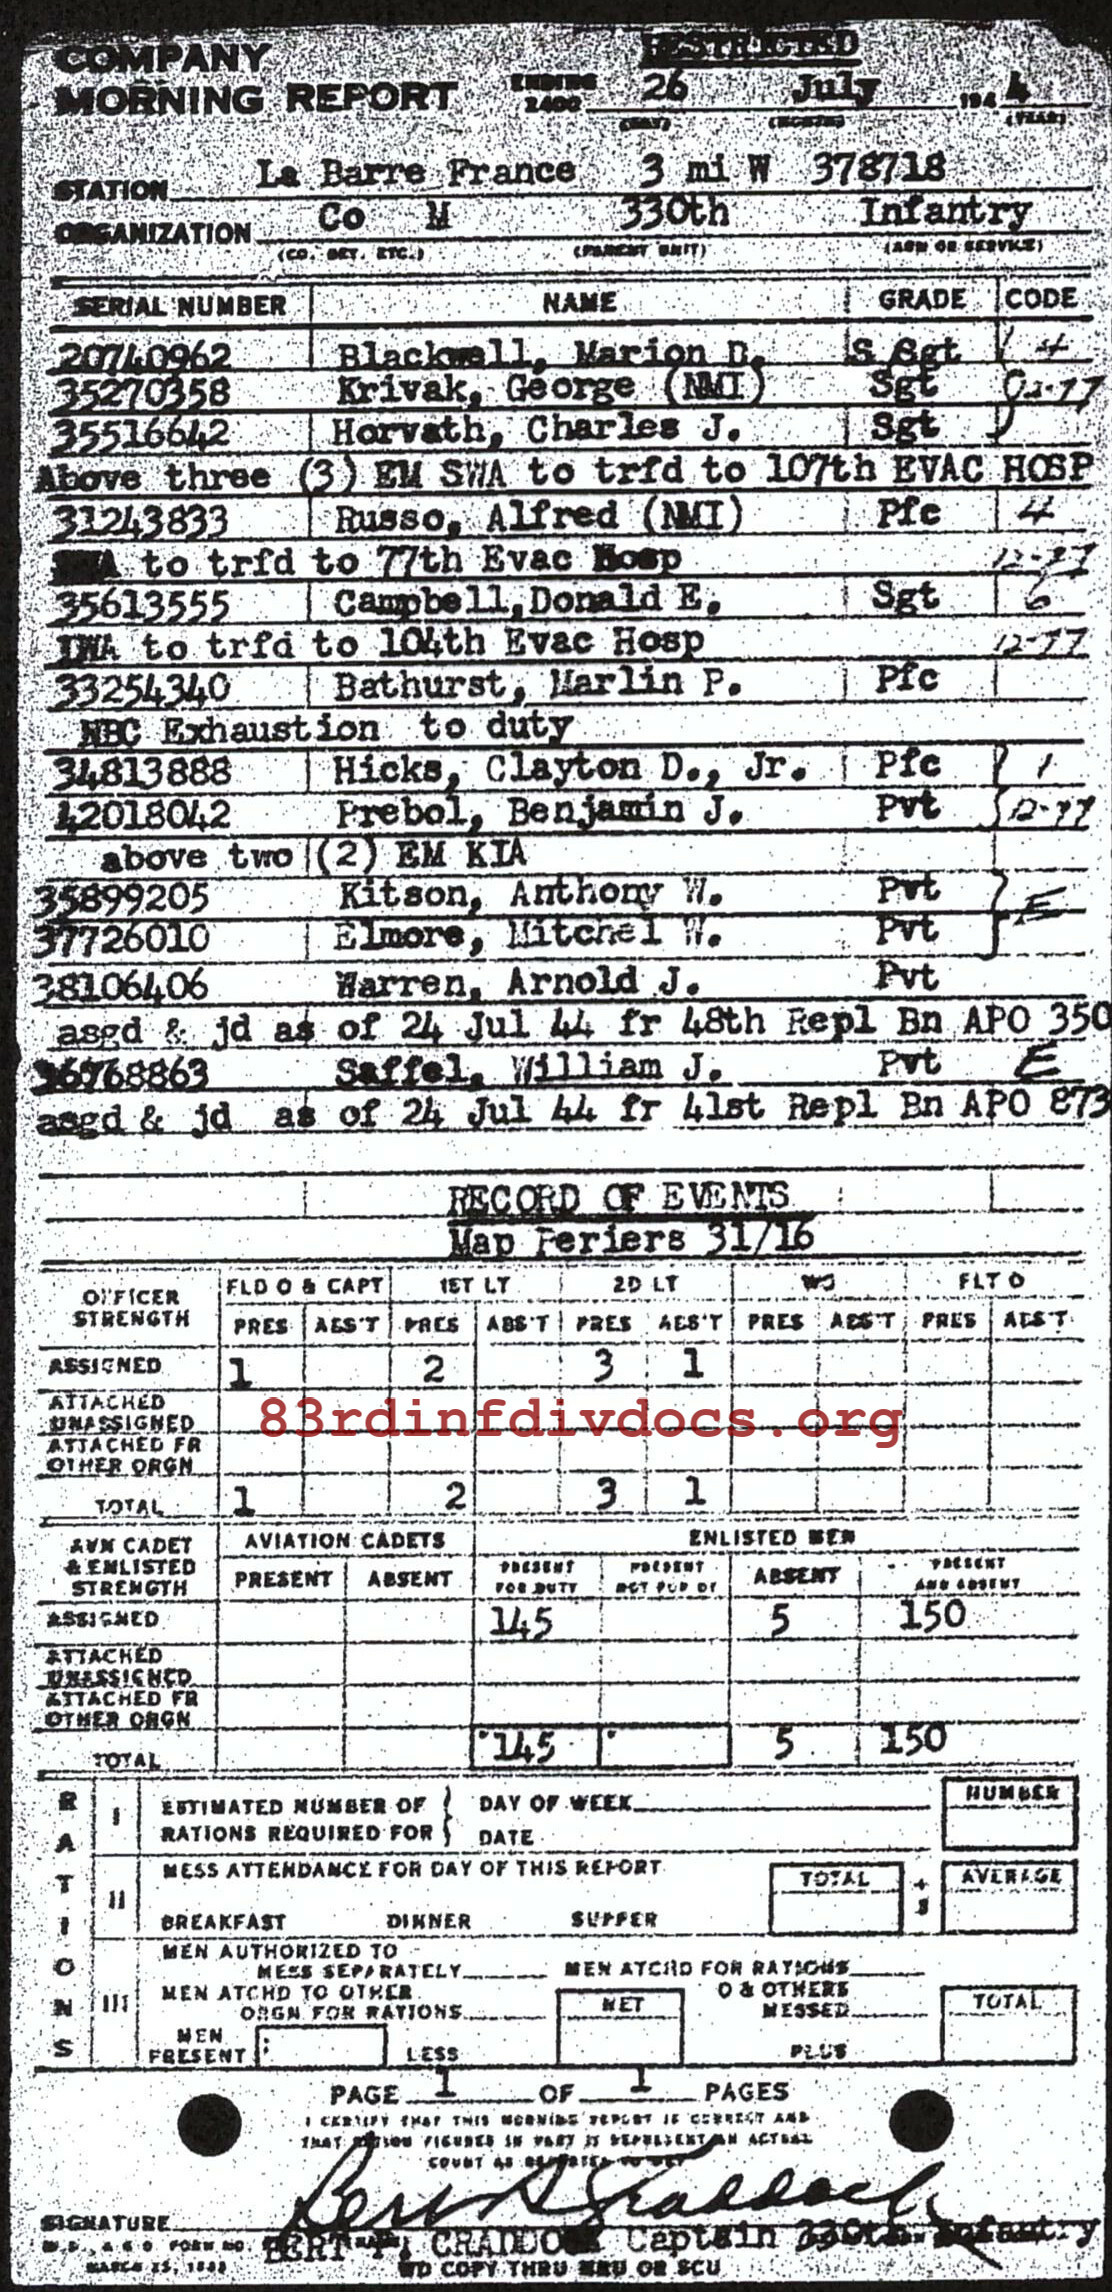 RESTRICTED
COMPANY
MORNING REPORT ENDING 2400 26 July 194 4
(DAY) (MONTH) (YEAR)
STATION La Barre France 3 mi W 378718
ORGANIZATION Co M 330th Infantry
(CO. DET. ETC.) (PARENT UNIT) (ARM OR SERVICE)
SERIAL NUMBER NAME GRADE CODE
20740962 Blackwell, Marion D. S Sgt 4
35270358 Krivak, George (NMI) Sgt 12-77
35516642 Horvath, Charles J. Sgt
Above three (3) EM SWA to trfd to 107th EVAC HOSP
31243833 Russo, Alfred (NMI) Pfc 4
SWA to trfd to 77th Evac Hosp 12-77
35613555 Campbell, Donald E. Sgt 6
LWA to trfd to 104th Evac Hosp 12-77
33254340 Bathurst, Marlin P. Pfc
NBC Exhaustion to duty
34813888 Hicks, Clayton D., Jr. Pfc 1
42018042 Prebol, Benjamin J. Pvt 12-77
above two (2) EM KIA
35899205 Kitson, Anthony W. Pvt E
37726010 Elmore, Mitchel W. Pvt
38106406 Warren, Arnold J. Pvt
asgd & jd as of 24 Jul 44 fr 48th Repl Bn APO 350
36968863 Saffel, William J. Pvt E
asgd & jd as of 24 Jul 44 fr 41st Repl Bn APO 873
RECORD OF EVENTS
Map Periers 31/16
OFFICER STRENGTH FLD O & CAPT 1ST LT 2D LT WO FLT O
PRES ABS'T PRES ABS'T PRES ABS'T PRES ABS'T PRES ABS'T
ASSIGNED 1 2 3 1
ATTACHED UNASSIGNED
83rdinfdivdocs.org
ATTACHED FR OTHER ORGN
TOTAL 1 2 3 1
AVN CADET & ENLISTED STRENGTH AVIATION CADETS ENLISTED MEN
PRESENT ABSENT PRESENT FOR DUTY PRESENT NOT FOR DY ABSENT PRESENT AND ABSENT
ASSIGNED 145 5 150
ATTACHED UNASSIGNED
ATTACHED FR OTHER ORGN
TOTAL 145 5 150
RATIONS
I ESTIMATED NUMBER OF RATIONS REQUIRED FOR DAY OF WEEK NUMBER
DATE
II MESS ATTENDANCE FOR DAY OF THIS REPORT TOTAL ÷ 3 AVERAGE
BREAKFAST DINNER SUPPER
III MEN AUTHORIZED TO MESS SEPARATELY MEN ATCHD FOR RATIONS
MEN ATCHD TO OTHER ORGN FOR RATIONS NET O & OTHERS MESSED TOTAL
MEN PRESENT LESS PLUS
PAGE 1 OF 1 PAGES
I CERTIFY THAT THIS MORNING REPORT IS CORRECT AND
THAT RATION FIGURES IN PART II REPRESENT AN ACTUAL
SIGNATURE
BERT P. CRADDOCK Captain 330th Infantry
W.D., A.G.O. FORM NO.
MARCH 25, 
WD COPY THRU MRU OR SCU